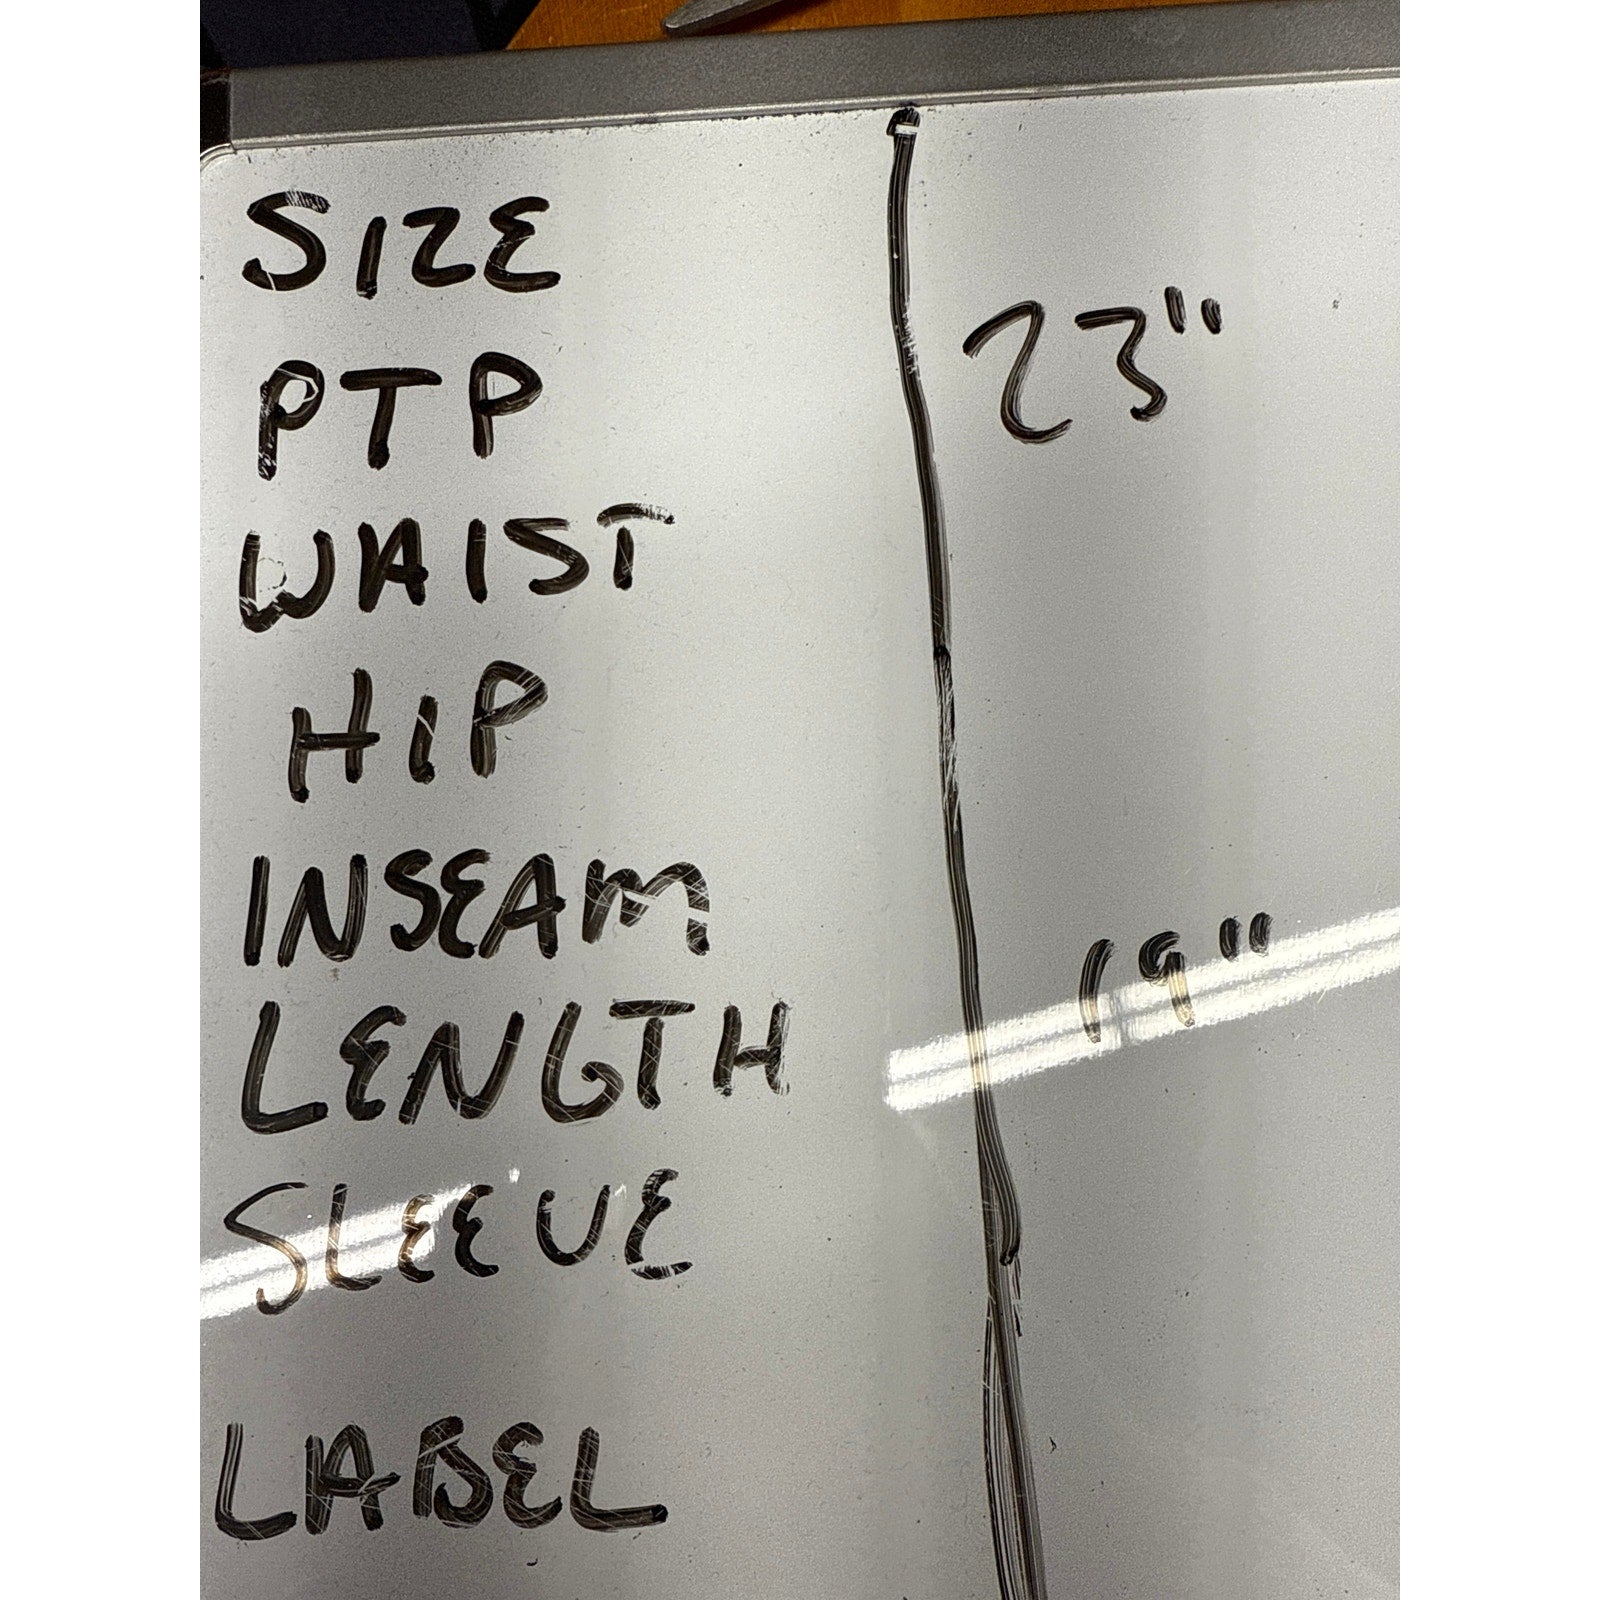 SIZE
PTP 23"
WAIST
HIP
INSEAM
LENGTH 19"
SLEEVE
LABEL